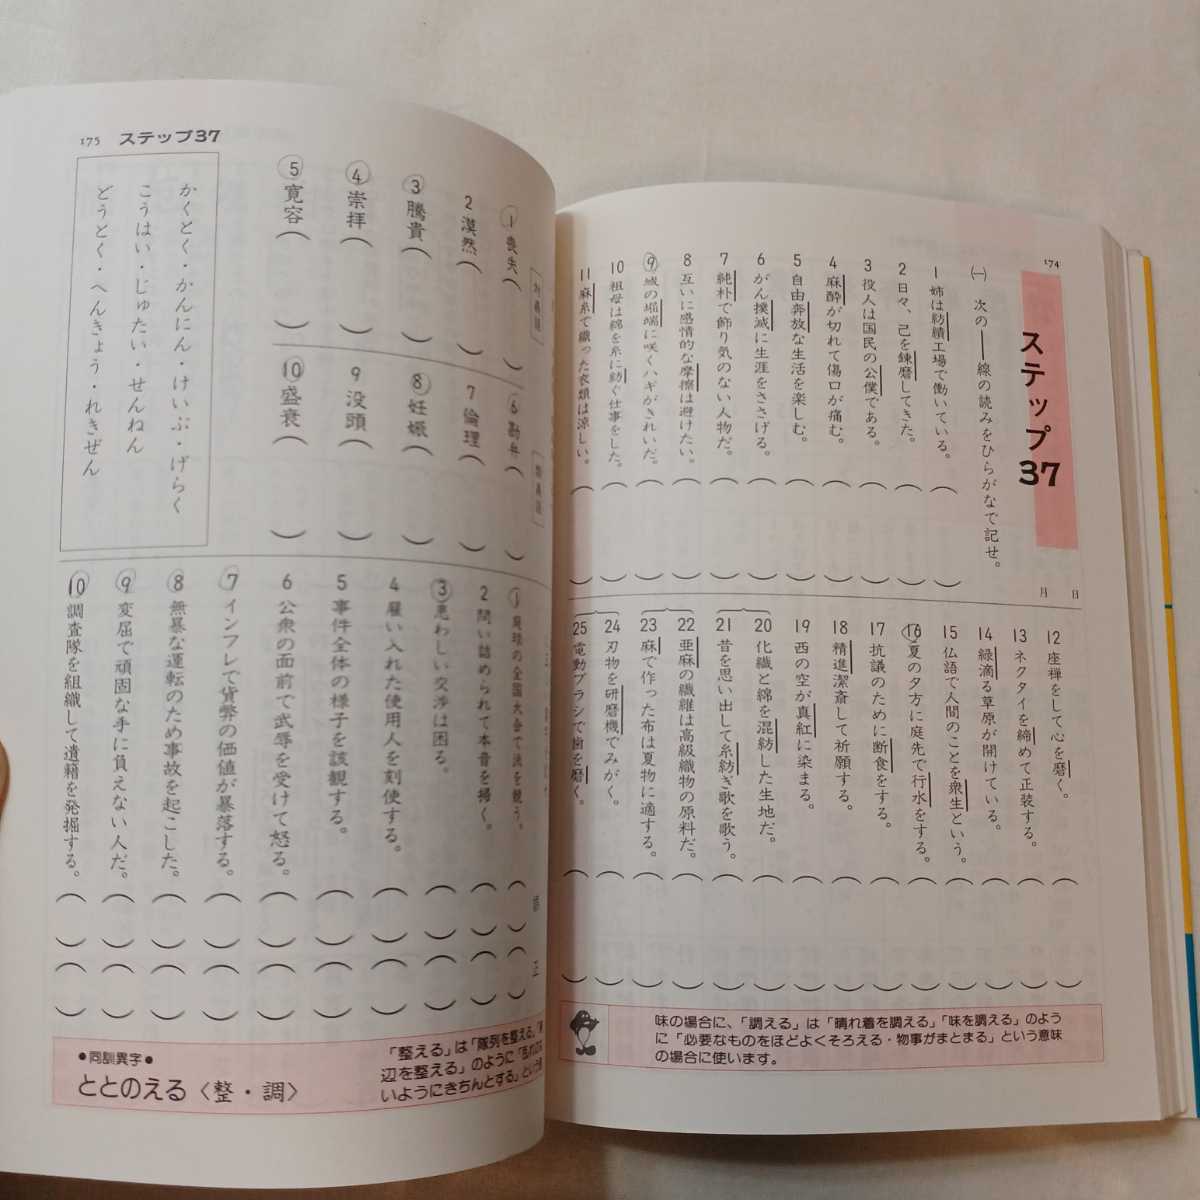 174
ステップ37
月　日
㈠ 次の――線の読みをひらがなで記せ。
1 姉は紡績工場で働いている。
2 日々、己を錬磨してきた。
3 役人は国民の公僕である。
4 麻酔が切れて傷口が痛む。
5 自由奔放な生活を楽しむ。
6 がん撲滅に生涯をささげる。
7 純朴で飾り気のない人物だ。
8 互いに感情的な摩擦は避けたい。
9 城の堀端に咲くハギがきれいだ。
10 祖母は綿を糸に紡ぐ仕事をした。
11 麻糸で織った衣類は涼しい。
12 座禅をして心を磨く。
13 ネクタイを締めて正装する。
14 緑滴る草原が開けている。
15 仏語で人間のことを衆生という。
16 夏の夕方に庭先で行水をする。
17 抗議のために断食をする。
18 精進潔斎して祈願する。
19 西の空が真紅に染まる。
20 化繊と綿を混紡した生地だ。
21 昔を思い出して糸紡ぎ歌を歌う。
22 亜麻の繊維は高級織物の原料だ。
23 麻で作った布は夏物に適する。
24 刃物を研磨機でみがく。
25 電動ブラシで歯を磨く。
味の場合に、「調える」は「晴れ着を調える」「味を調える」のよう
に「必要なものをほどよくそろえる・物事がまとまる」という意味
の場合に使います。
175 ステップ37
対義語
1 喪失
2 漠然
3 騰貴
4 崇拝
5 寛容
類義語
6 勘弁
7 倫理
8 妊娠
9 没頭
10 盛衰
かくとく・かんにん・けいぶ・げらく
こうはい・じゅたい・せんねん
どうとく・へんきょう・れきぜん
誤　正
1 庭球の全国大会で技を競う。
2 問い詰められて本音を掃く。
3 患わしい交渉は困る。
4 雇い入れた使用人を刻使する。
5 事件全体の様子を該観する。
6 公衆の面前で武辱を受けて怒る。
7 インフレで貨弊の価値が暴落する。
8 無暴な運転のため事故を起こした。
9 変屈で頑固な手に負えない人だ。
10 調査隊を組織して遺籍を発掘する。
●同訓異字●
ととのえる〈整・調〉
「整える」は「隊列を整える」
辺を整える」のように「乱れ
いようにきちんとする」という